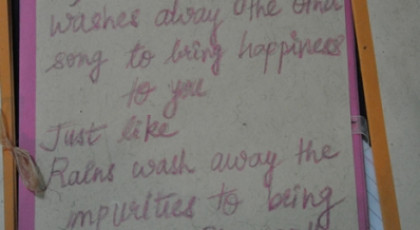 washes away the other
song to bring happiness
to you
Just like
Rains wash away the
impurities to being